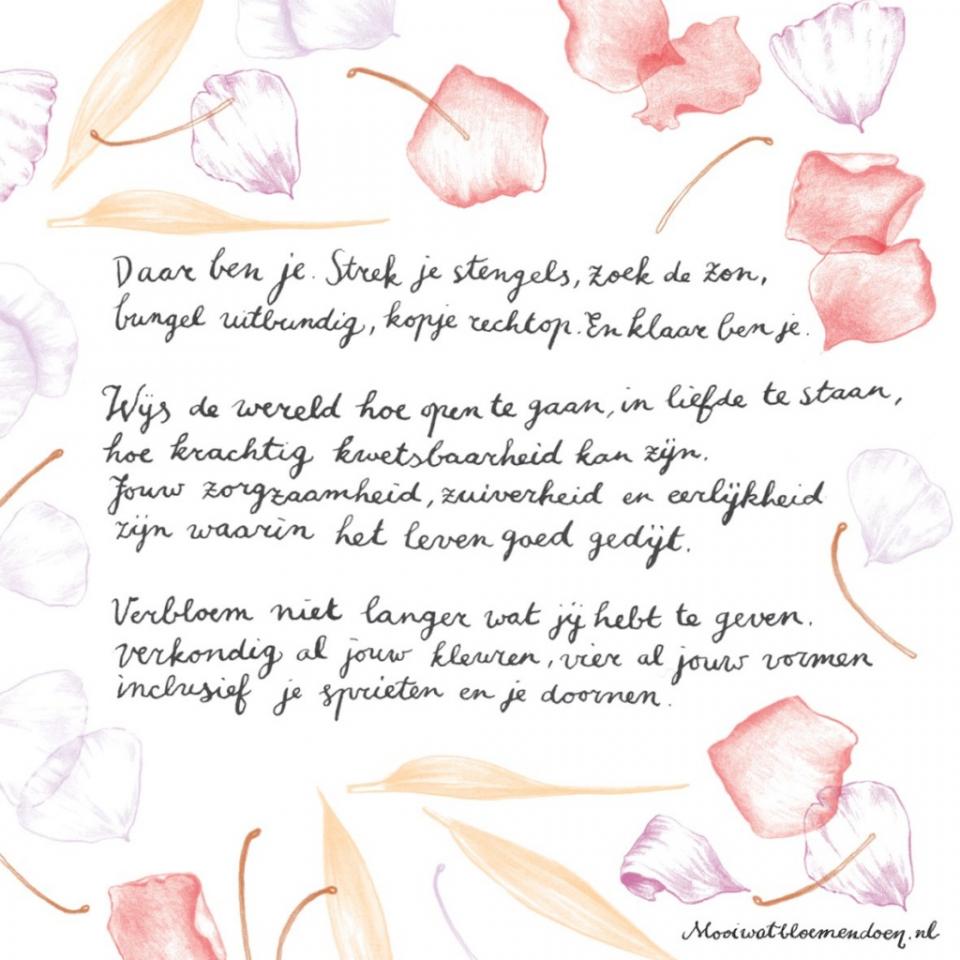 Daar ben je. Strek je stengels, zoek de zon,
bungel uitbundig, kopje rechtop. En klaar ben je.
Wijs de wereld hoe open te gaan, in liefde te staan,
hoe krachtig kwetsbaarheid kan zijn.
Jouw zorgzaamheid, zuiverheid en eerlijkheid
zijn waarin het leven goed gedijt.
Verbloem niet langer wat jij hebt te geven.
verkondig al jouw kleuren, vier al jouw vormen
inclusief je sprieten en je doornen.
Mooiwatbloemendoen.nl